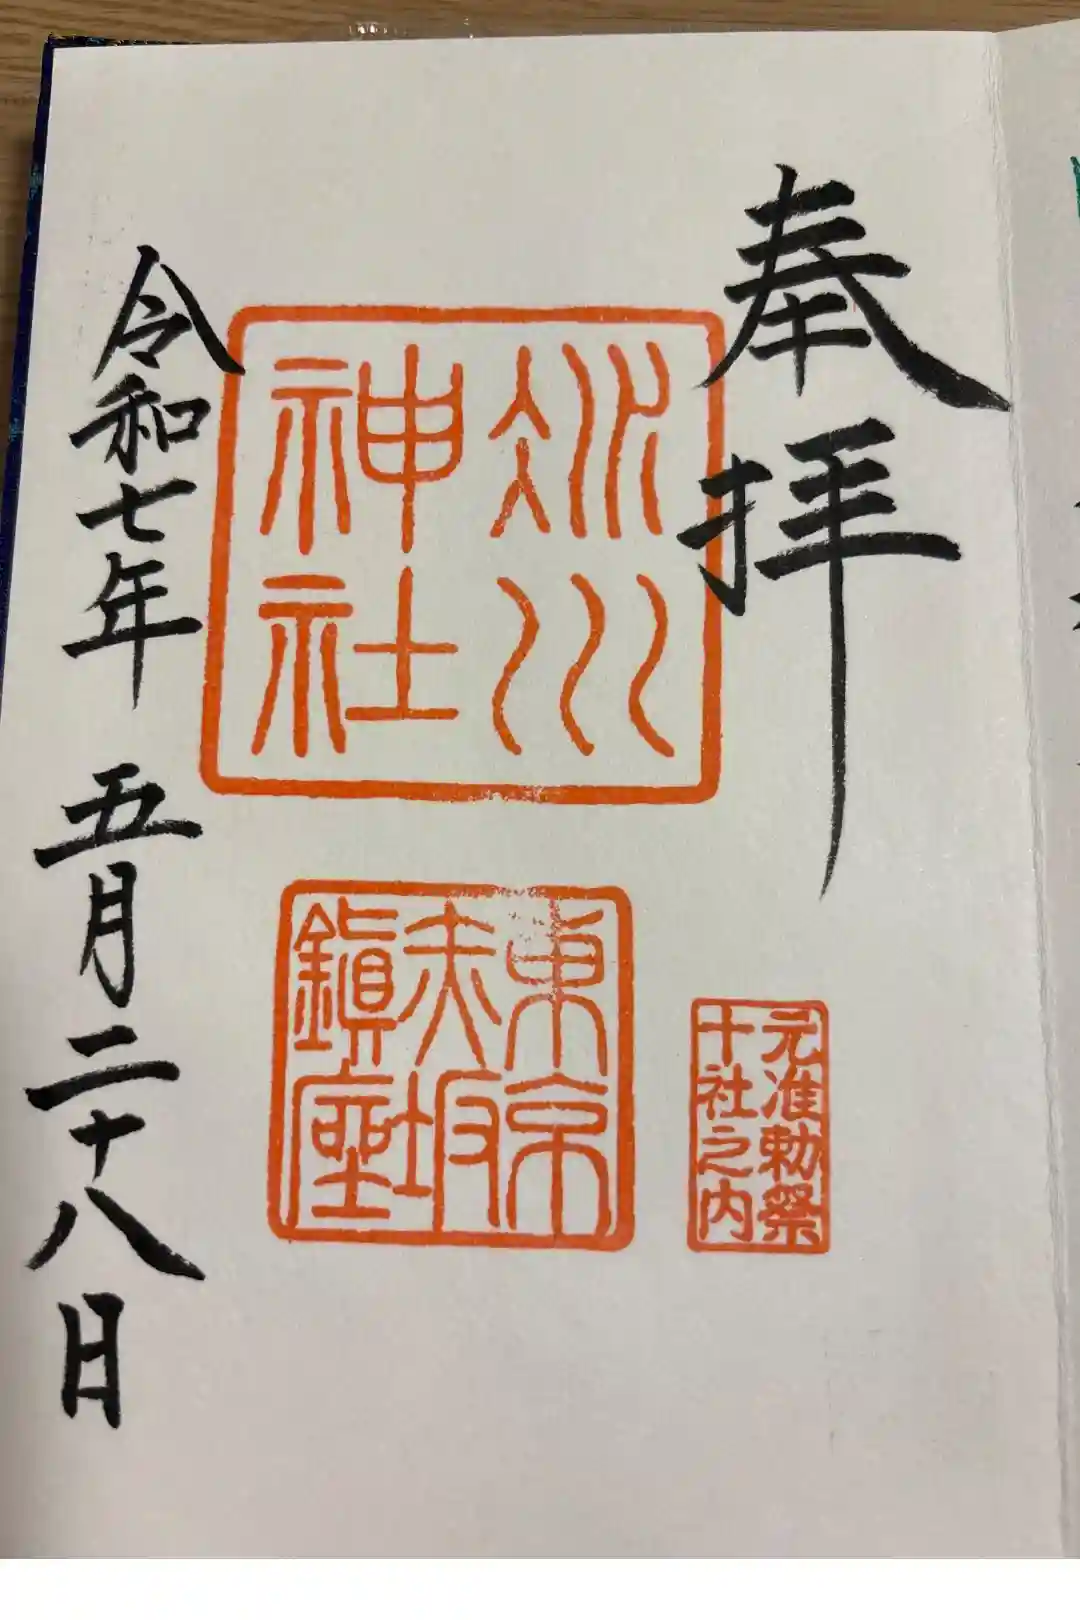 奉拝
氷川
神社
東京
赤坂
鎮座
元准勅祭
十社之内
令和七年 五月二十八日